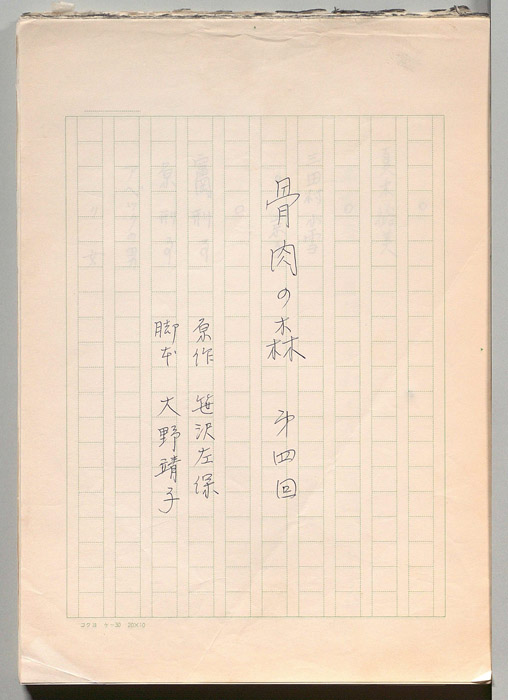 骨肉の森　第四回
原作　笹沢左保
脚本　大野靖子
コクヨ ケ-30 20×10